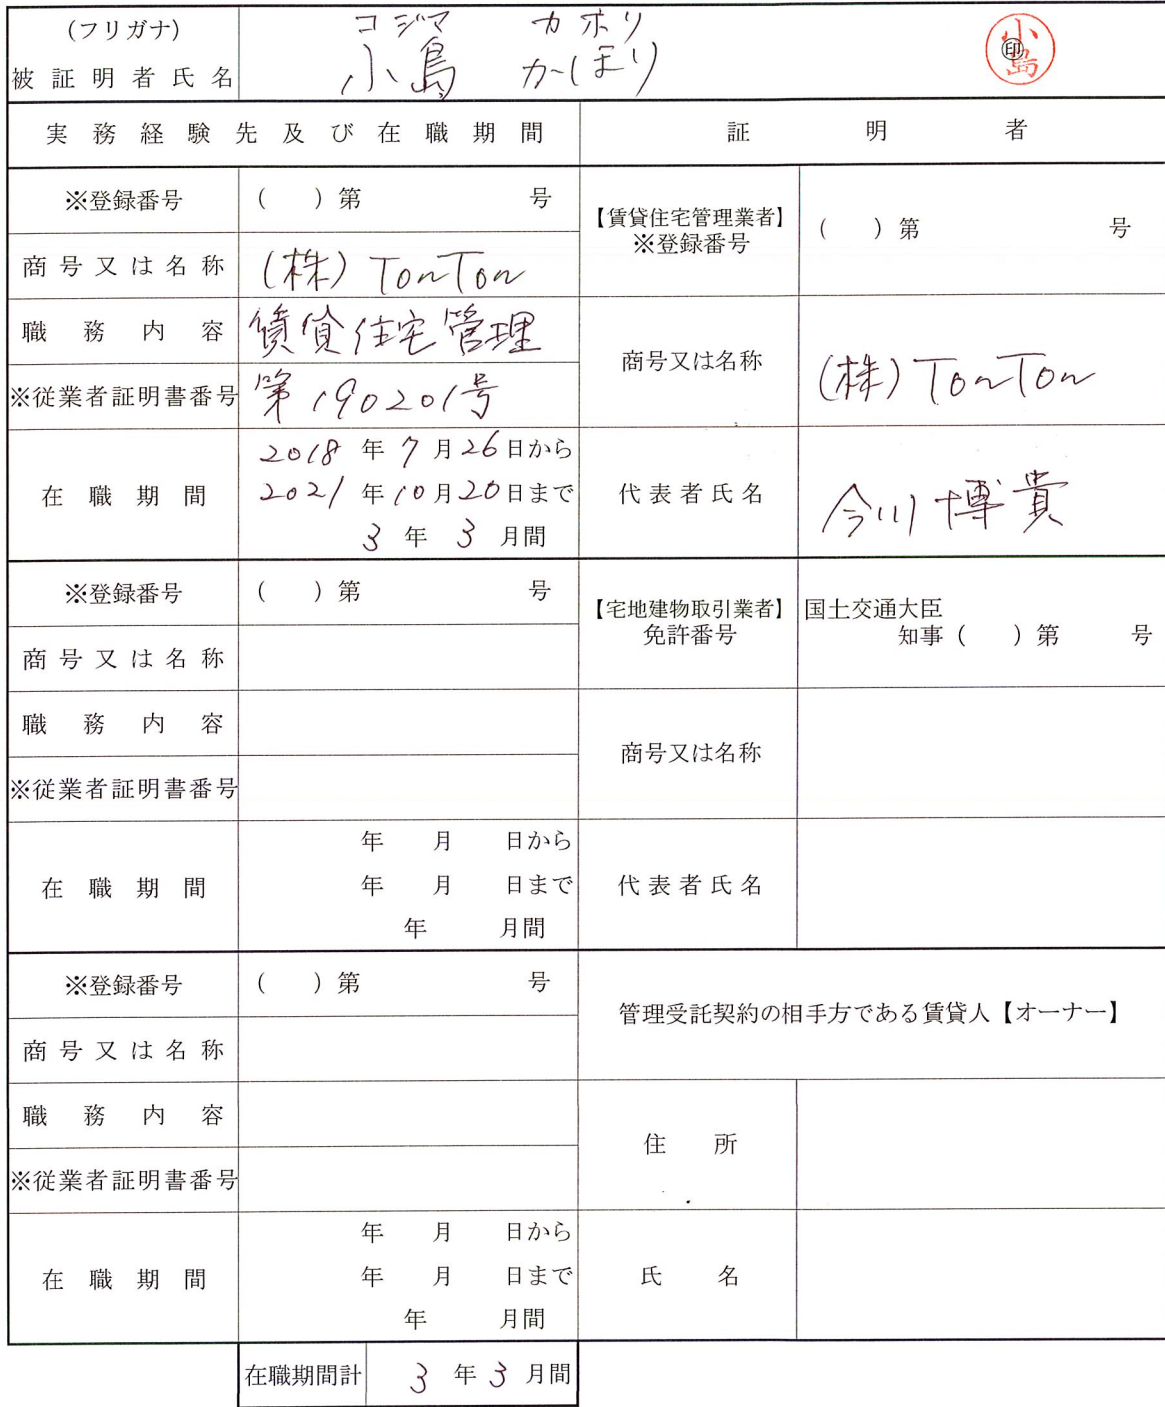 (フリガナ) コジマ カホリ
被証明者氏名 小島 かほり ㊞ 小島
実務経験先及び在職期間 証明者
※登録番号 ( ) 第 号
商号又は名称 (株) TonTon
職務内容 賃貸住宅管理
※従業者証明書番号 第190201号
在職期間 2018年7月26日から
2021年10月20日まで
3年3月間
【賃貸住宅管理業者】
※登録番号 ( ) 第 号
商号又は名称 (株) TonTon
代表者氏名 今川博貴
※登録番号 ( ) 第 号
商号又は名称
職務内容
※従業者証明書番号
在職期間 年 月 日から
年 月 日まで
年 月間
【宅地建物取引業者】 国土交通大臣
免許番号 知事 ( ) 第 号
商号又は名称
代表者氏名
※登録番号 ( ) 第 号
商号又は名称
職務内容
※従業者証明書番号
在職期間 年 月 日から
年 月 日まで
年 月間
管理受託契約の相手方である賃貸人【オーナー】
住所
氏名
在職期間計 3年3月間